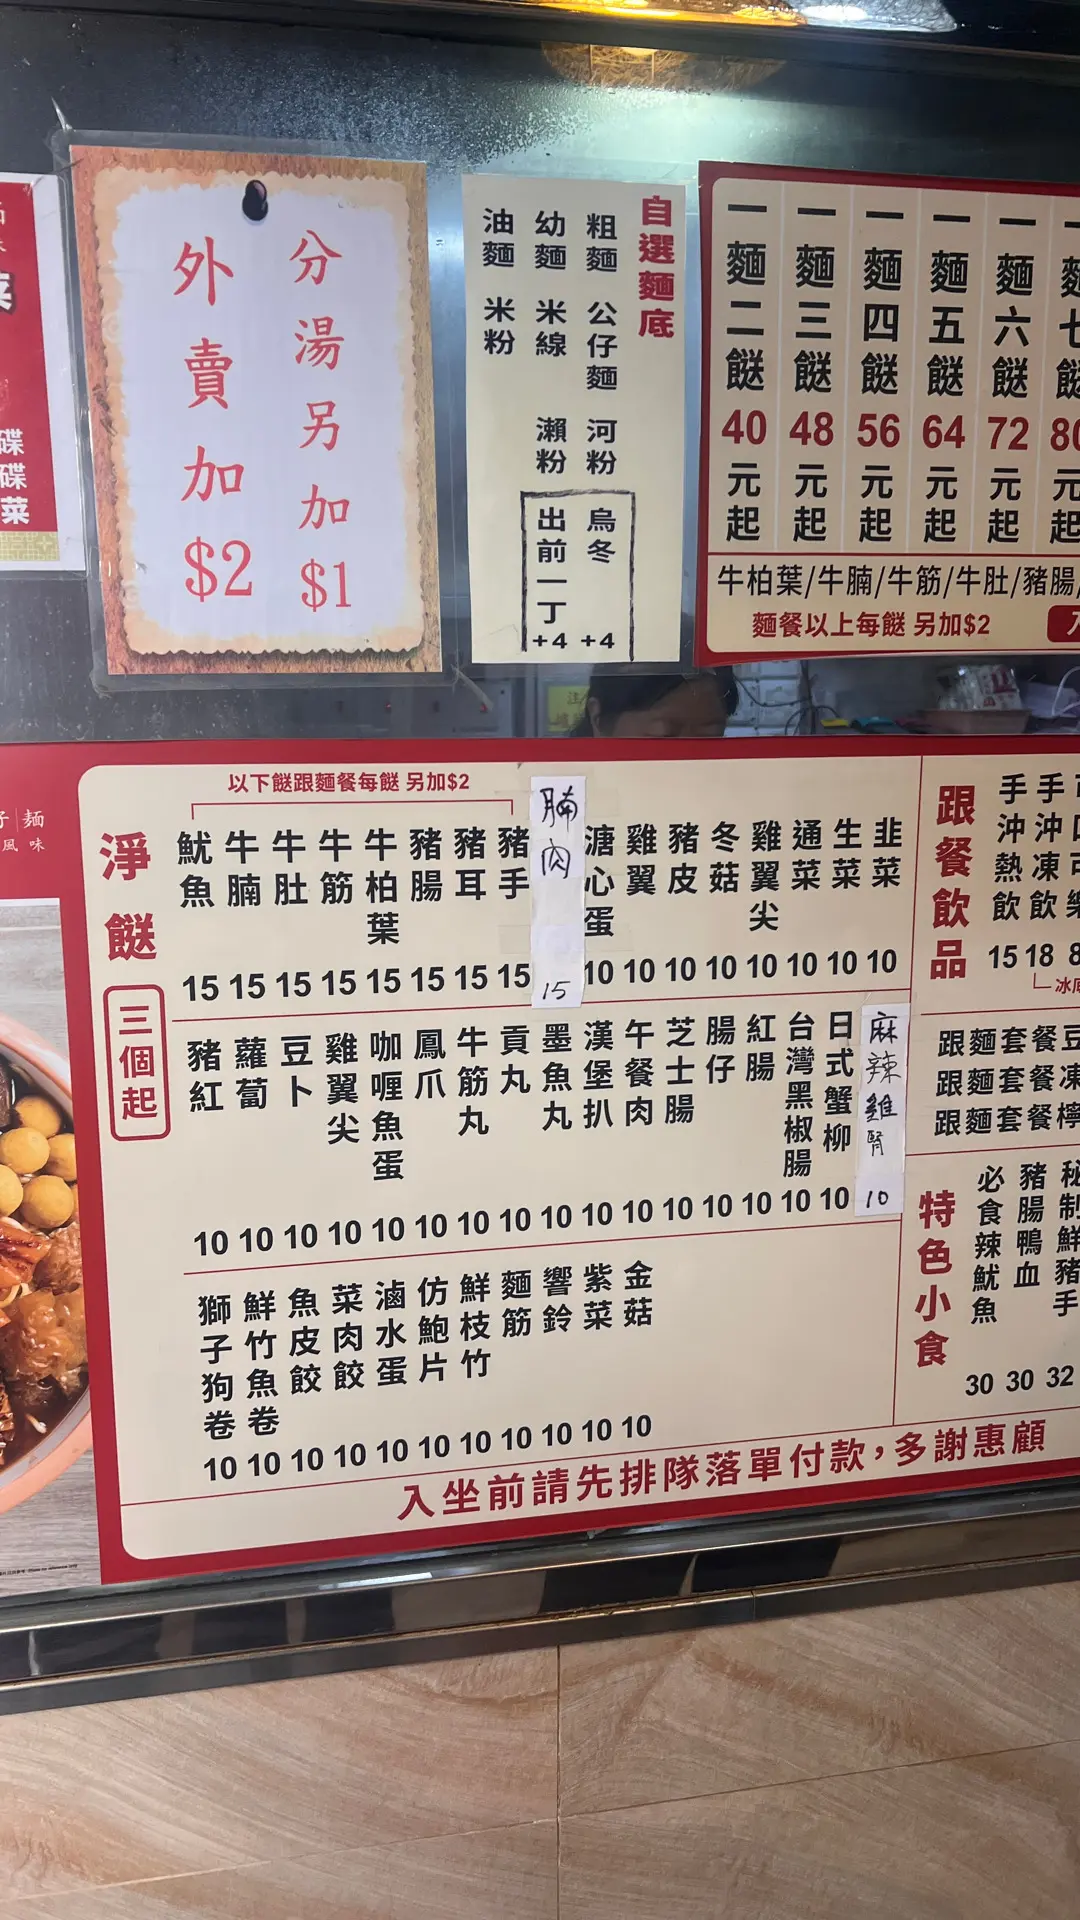 菜
碟
碟
菜
分湯另加$1
外賣加$2
自選麵底
粗麵 公仔麵 河粉 烏冬 +4
幼麵 米線 瀨粉 出前一丁 +4
油麵 米粉
一麵二餸 40元起
一麵三餸 48元起
一麵四餸 56元起
一麵五餸 64元起
一麵六餸 72元起
一麵七餸 80元起
牛柏葉/牛腩/牛筋/牛肚/豬腸/
麵餐以上每餸 另加$2
麵
風味
淨餸
三個起
以下餸跟麵餐每餸 另加$2
魷魚 15
牛腩 15
牛肚 15
牛筋 15
牛柏葉 15
豬腸 15
豬耳 15
豬手 15
腩肉 15
溏心蛋 10
雞翼 10
豬皮 10
冬菇 10
雞翼尖 10
通菜 10
生菜 10
韭菜 10
豬紅 10
蘿蔔 10
豆卜 10
雞翼尖 10
咖喱魚蛋 10
鳳爪 10
牛筋丸 10
貢丸 10
墨魚丸 10
漢堡扒 10
午餐肉 10
芝士腸 10
腸仔 10
紅腸 10
台灣黑椒腸 10
日式蟹柳 10
麻辣雞腎 10
獅子狗卷 10
鮮竹魚卷 10
魚皮餃 10
菜肉餃 10
滷水蛋 10
仿鮑片 10
鮮枝竹 10
麵筋 10
響鈴 10
紫菜 10
金菇 10
跟餐飲品
手沖熱飲 15
手沖凍飲 18
8
冰底
跟麵套餐豆
跟麵套餐凍
跟麵套餐檸
特色小食
必食辣魷魚 30
豬腸鴨血 30
秘制鮮豬手 32
入坐前請先排隊落單付款，多謝惠顧